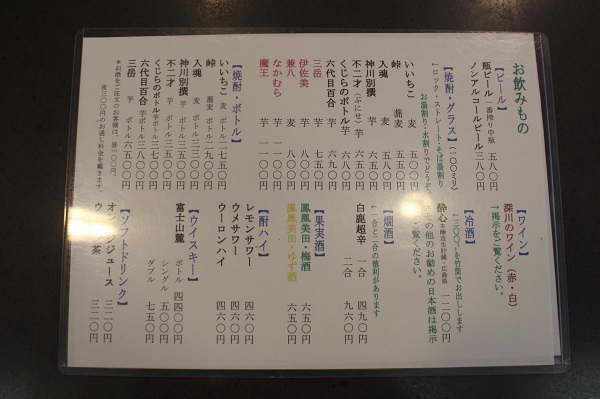 お飲みもの
【ビール】
瓶ビール 一番搾り中瓶 五八〇
ノンアルコールビール 三八〇
【焼酎・グラス】(一〇〇ミリ)
←ロック・ストレート・そば湯割り
お湯割り・水割りでどうぞ
いいちこ 麦 五〇〇
峠 蕎麦 五五〇
入魂 麦 五五〇
神川別撰 芋 五五〇
不二才(ぶにせ) 芋 六五〇
くじらのボトル 芋 六八〇
六代目百合 芋 六九〇
三岳 芋 七五〇
伊佐美 芋 八〇〇
兼八 麦 八〇〇
なかむら 芋
魔王 芋
【焼酎・ボトル】
いいちこ 麦 ボトル 二七五〇
峠 蕎麦 ボトル 二九〇〇
入魂 麦 ボトル 三三〇〇
神川別撰 芋 ボトル
不二才 芋 ボトル
くじらのボトル 芋 ボトル
六代目百合 芋 ボトル
三岳 芋 ボトル 六五〇〇
*お酒をご注文のお客様は、昼一〇〇円、
夜三〇〇円のお通し料金を戴きます。
【ワイン】
深川のワイン(赤・白)
→掲示をご覧ください。
【冷酒】
←三〇〇㍉を竹筒でお出しします
酔心 本醸造生貯蔵・広島県 一二〇〇
の他のお勧めの日本酒は掲示
ご覧ください。
【燗酒】
←一合と二合の徳利があります
白鹿超辛 一合 四九〇
二合 九六〇
【果実酒】
鳳凰美田・梅酒 六五〇
鳳凰美田・ゆず酒 六五〇
【酎ハイ】
レモンサワー 四六〇
ウメサワー 四六〇
ウーロンハイ 四六〇
【ウイスキー】
富士山麓 ボトル 四四〇〇
シングル 五〇〇
ダブル 七五〇
【ソフトドリンク】
オレンジジュース 三二〇
茶 三二〇